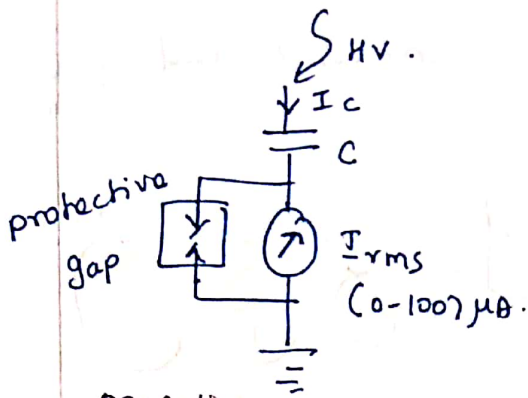 HV.
Ic
C
protective
gap
Irms
(0-100) μA.